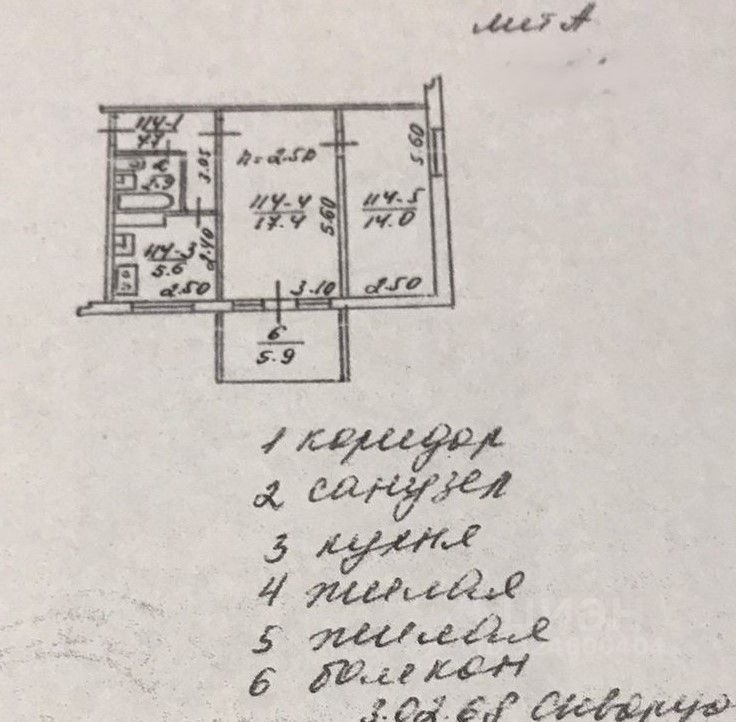 лит А
114-1
7.7
2
2.9
3.05
h=2.50
5.60
114-4
17.4
5.60
114-5
14.0
114-3
5.6
2.40
2.50
3.10
2.50
6
5.9
1 коридор
2 санузел
3 кухня
4 жилая
5 жилая
6 балкон
3.02.68